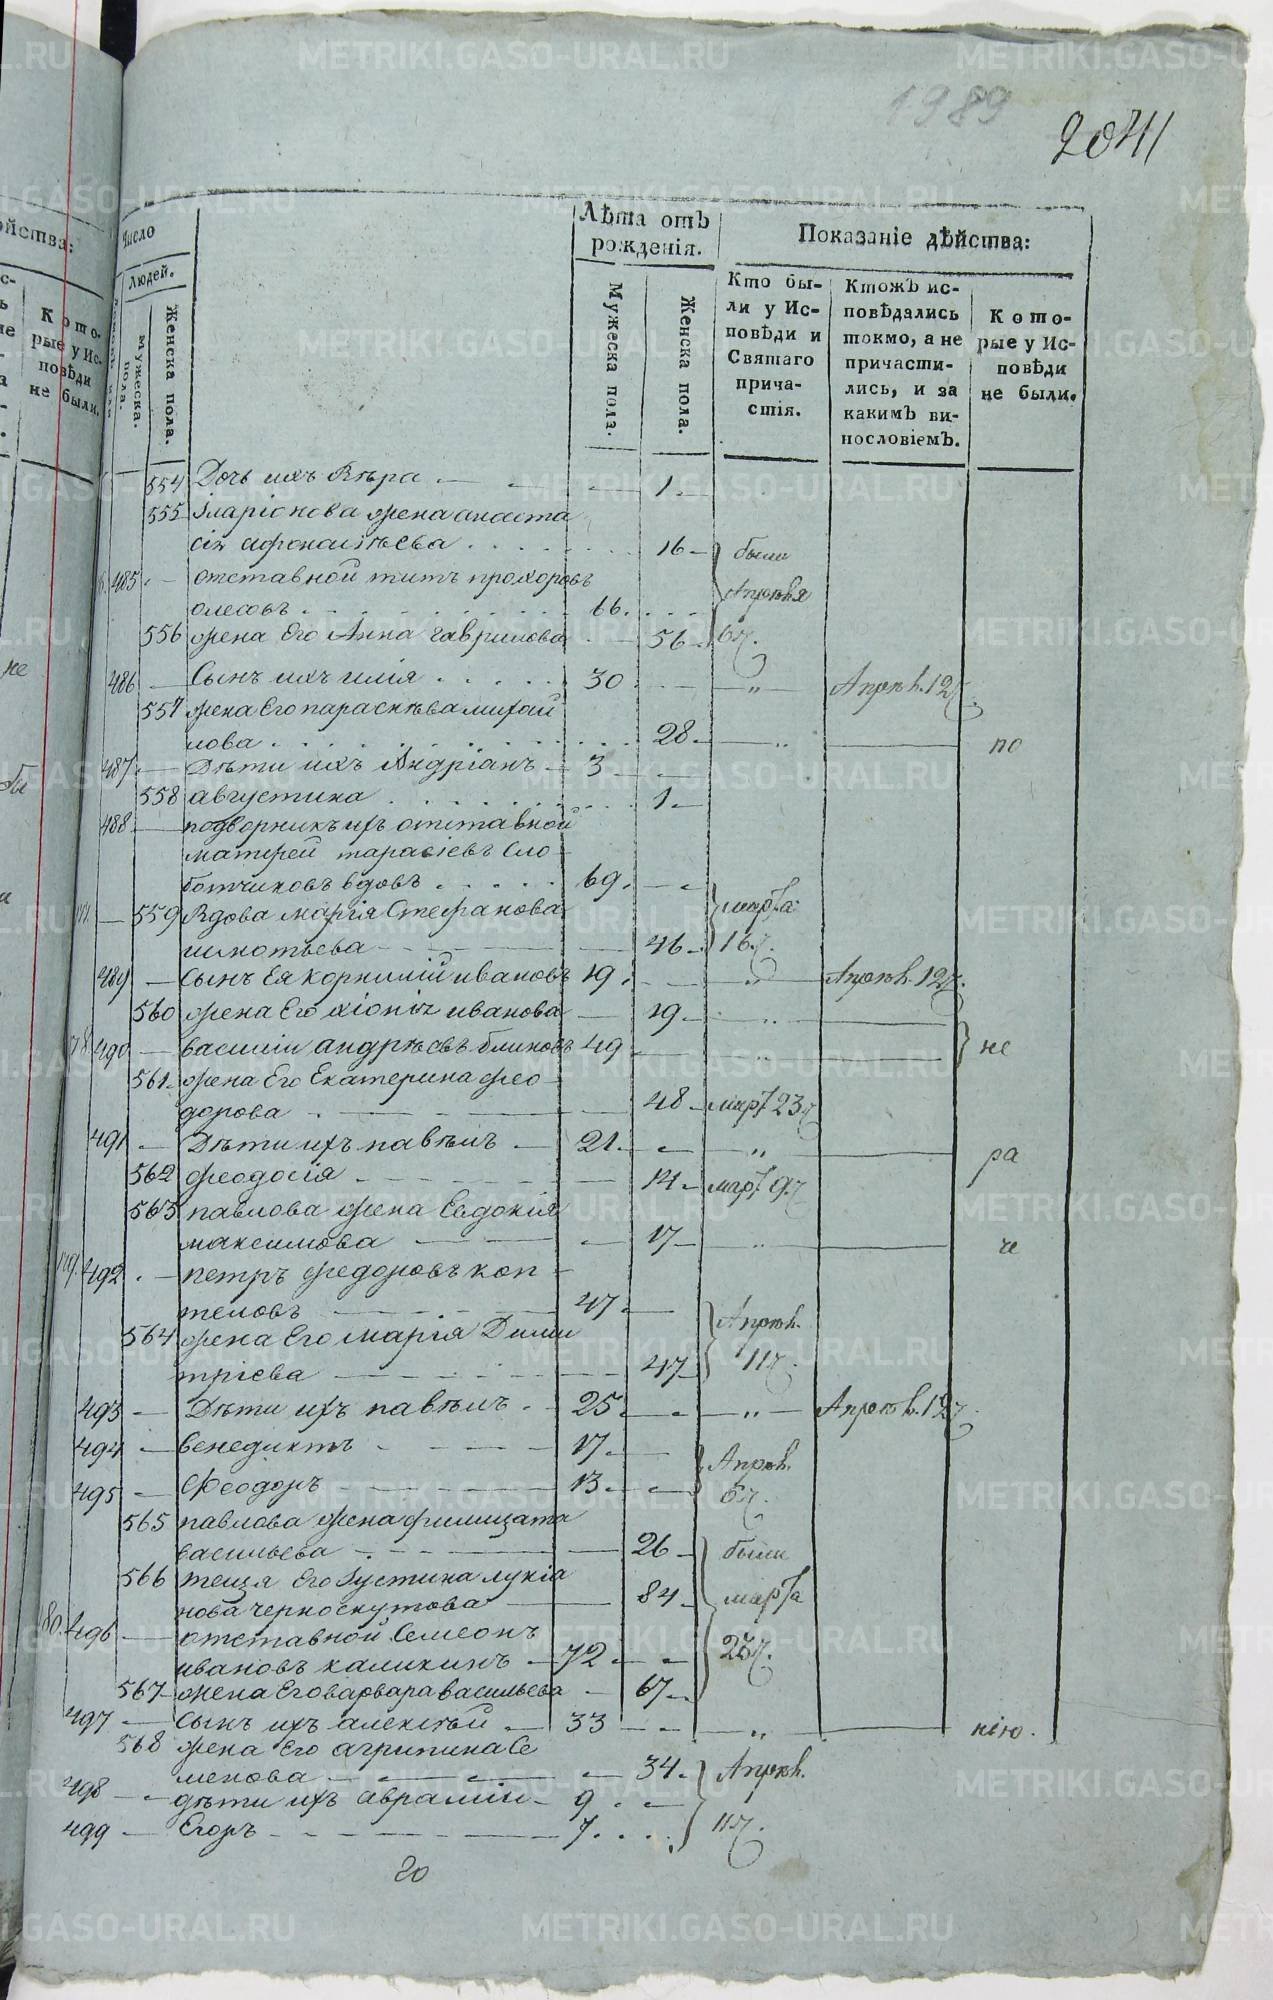 1989
2041
ойства:
Кото-
рые у Ис-
повѣди
не были.
Число
людей.
Мужеска пола.
Женска пола.
Лѣта отъ
рожденія.
Мужеска пола.
Женска пола.
Показаніе дѣйства:
Кто бы-
ли у Ис-
повѣди и
Святаго
прича-
стія.
Ктожъ ис-
повѣдались
токмо, а не
причасти-
лись, и за
какимъ ви-
нословіемъ.
Кото-
рые у Ис-
повѣди
не были.
554 Дочь ихъ Вѣра 1
555 Іларіонова жена анаста
сія афонасіѣва 16 были
485 отставной титъ прохоровъ Апрѣля
66.
556 жена Его Анна гаврилова 56 6г.
486 Сынъ ихъ илія 30 „ Апрѣл. 12г.
557 жена Его параскѣва михаи
лова 28 „ по
487 Дѣти ихъ Андріанъ 3
558 августина 1
488 подворникъ ихъ отставной
матфей тарасіевъ Сло
ботчиковъ вдовъ 69.
559 Вдова марія Стефанова марта
46 16г.
489 Сынъ Ея корнилій ивановъ 19 „ Апрѣл. 12г.
560 жена Его хіонія иванова 19 „
78 490 василій андрѣевъ блиновъ 49 „ не
561 жена Его Екатерина фео
дорова 48 март 23г
491 Дѣти ихъ павѣлъ 21. „ ра
562 феодосія 14 март 9г
563 павлова жена Евдокія
максимова 17 „ че
79. 492 петръ федоровъ коп
теловъ 47 Апрѣл.
564 жена Его марія Дими
тріева 47 11г.
493 Дѣти ихъ павѣлъ 25 „ Апрѣл. 12г
494 венедиктъ 17 Апрѣл.
495 Феодоръ 13 6г.
565 павлова жена филицата
васильева 26 были
566 теща Его Іустина лукіа
нова черноскутова 84 марта
80. 496 отставной Симеонъ
ивановъ каликинъ 72 23г.
567 жена Его варвара васильева 67
497 Сынъ ихъ алексѣй 33 „ нію.
568 жена Его агрипина Се
менова 34 Апрѣл.
498 дѣти ихъ аврамій 9
499 Егоръ 7. 11г.
20
METRIKI.GASO-URAL.RU